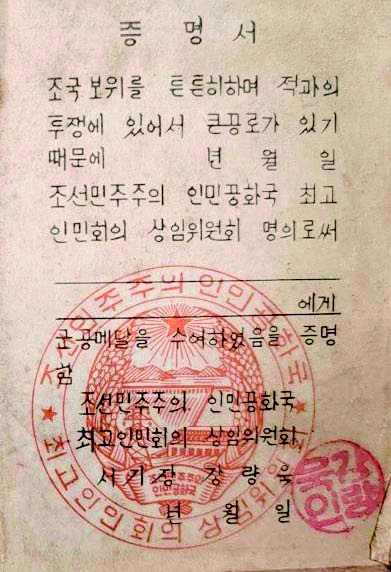 증 명 서
조국 보위를 튼튼히하며 적과의
투쟁에 있어서 큰공로가 있기
때문에 년 월 일
조선민주주의 인민공화국 최고
인민회의 상임위원회 명의로써
에게
군공메달을 수여하였음을 증명
함
조선민주주의 인민공화국
최고인민회의 상임위원회
서기장 강량욱
년 월 일
조선민주주의인민공화국
최고인민회의 상임위원회
조선민주주의
인민공화국
강량욱인